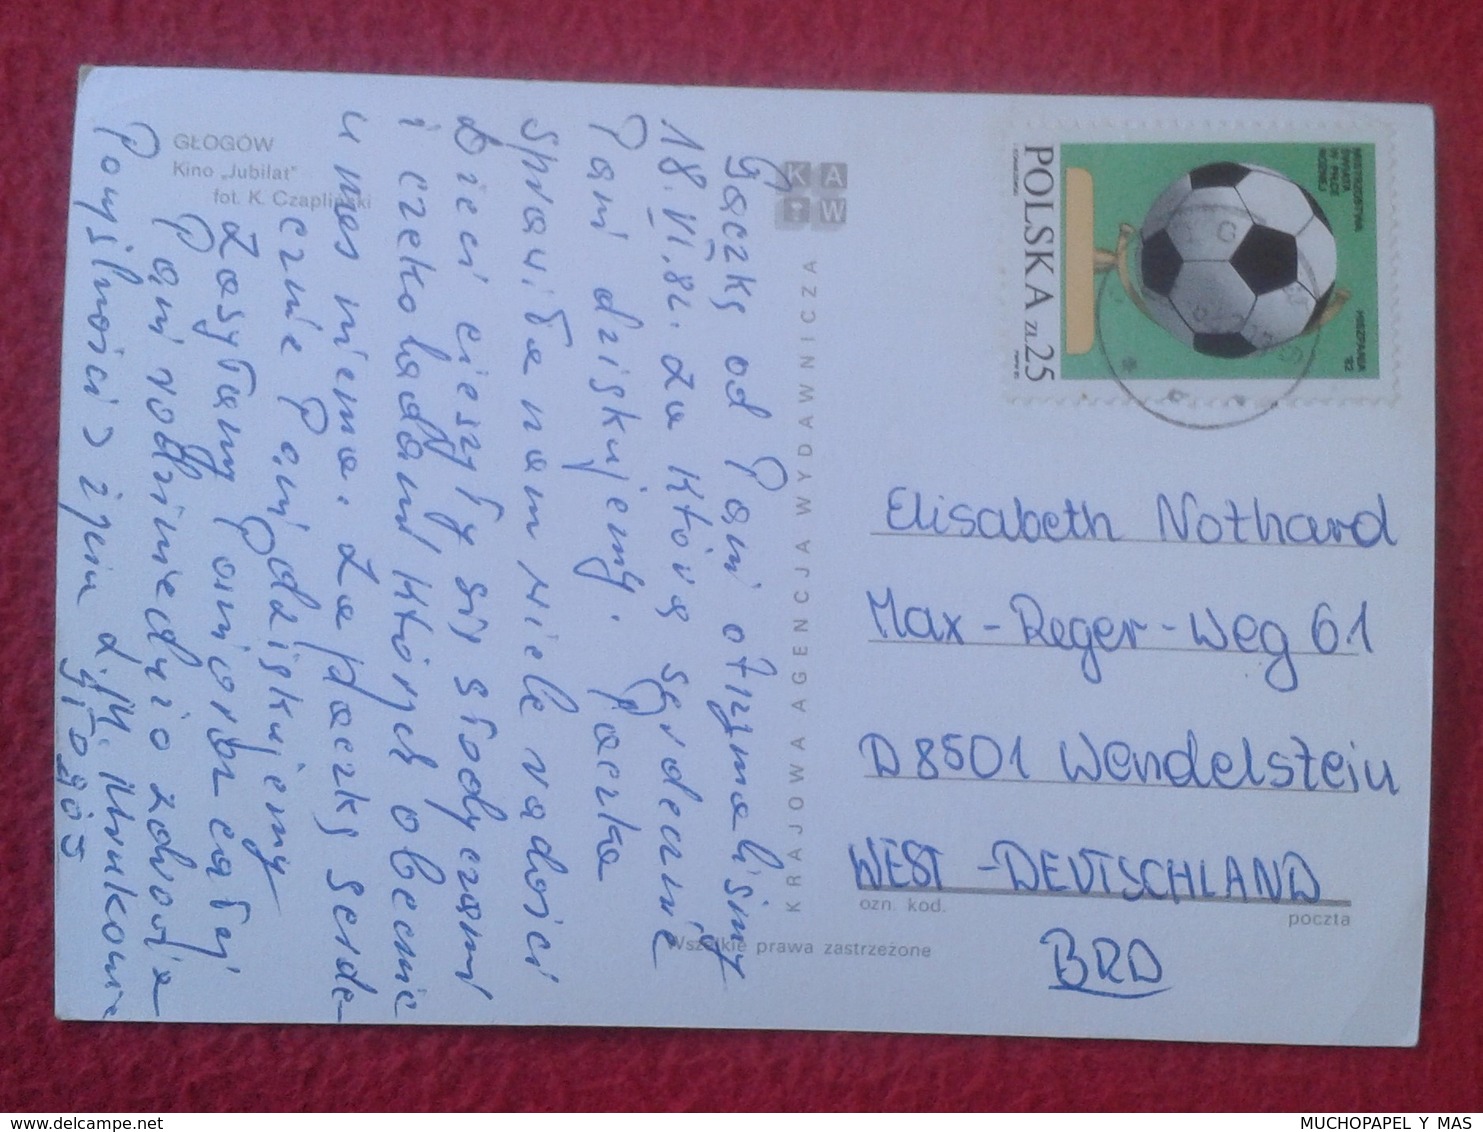 GŁOGÓW
Kino „Jubilat"
fot. K. Czapliński
Paczkę od Pani otrzymaliśmy
18.VI.82. Za którą serdecznie
Pani dziękujemy. Paczka
sprawiła nam wiele radości
Dzieci cieszyły się słodyczami
i czekoladami których obecnie
u nas niema. Za paczkę serde-
cznie Pani dziękujemy
Zasyłamy oraz całej
Pani rodzinie dużo zdrowia
Pomyślności życzą Z.M.
Głogów
KRAJOWA AGENCJA WYDAWNICZA
KAW
POLSKA ZŁ 25
MISTRZOSTWA
ŚWIATA
W PIŁCE
NOŻNEJ
HISZPANIA '82
Elisabeth Nothard
Max-Reger-Weg 61
D 8501 Wendelstein
WEST-DEUTSCHLAND
BRD
ozn. kod.
poczta
Wszelkie prawa zastrzeżone
MUCHOPAPEL Y MAS